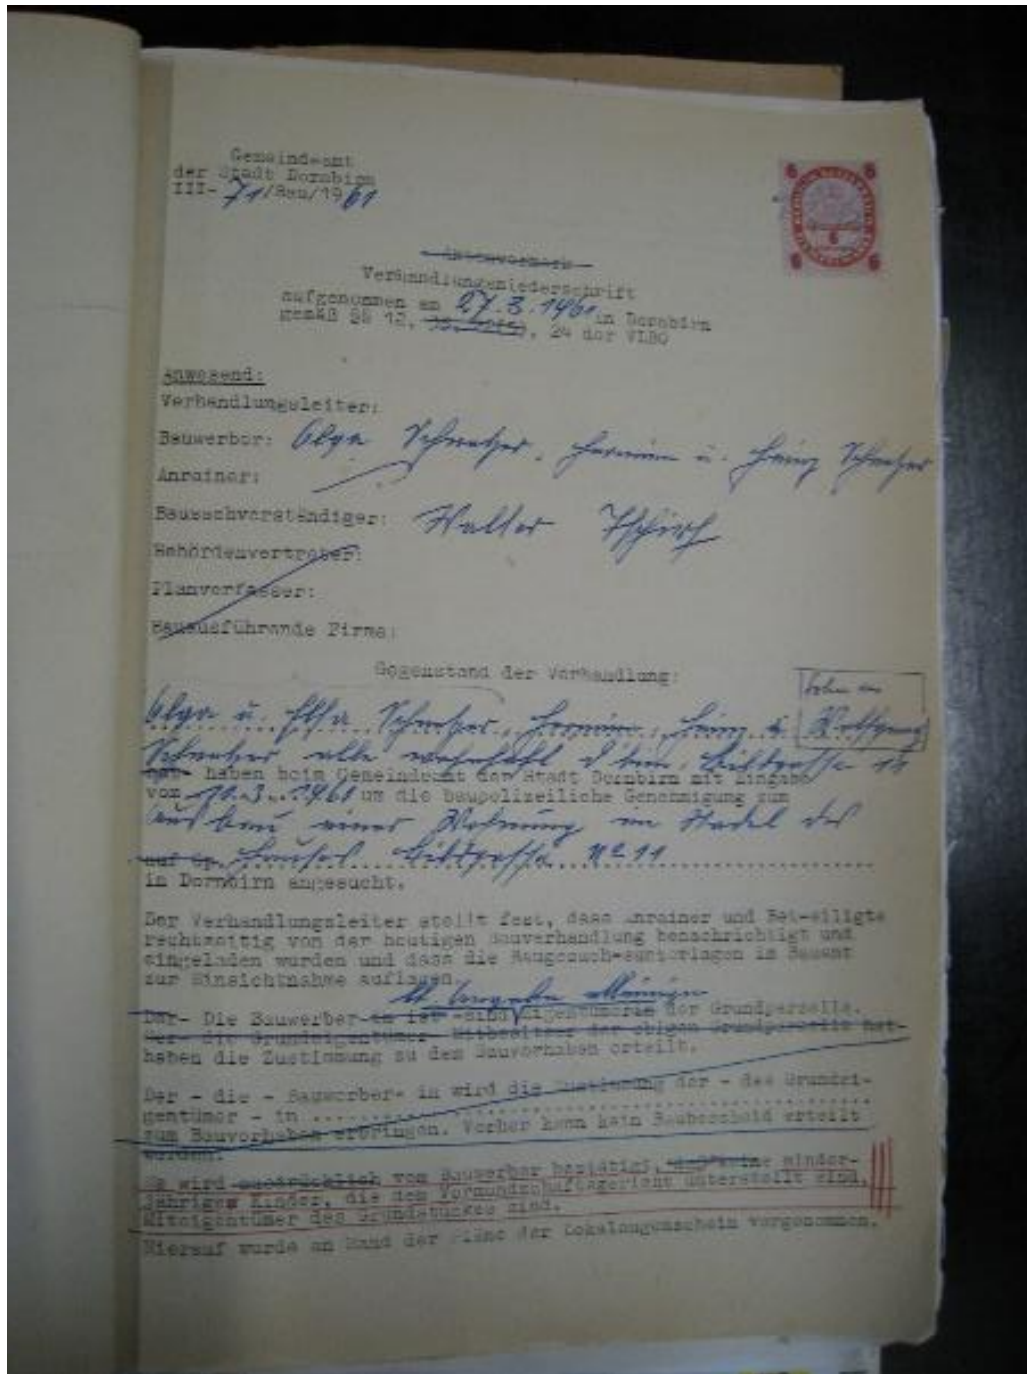 Gemeindeamt
der Stadt Dornbirn
III-71/Bau/1961
6 6
6
6 6
Amtsvermerk
Verhandlungsniederschrift
aufgenommen am 27.3.1961 in Dornbirn
gemäß §§ 12, 24 der VLBO
Anwesend:
Verhandlungsleiter:
Bauwerber: Olga Schwetzer, Hermine u. Heinz
Anrainer:
Bausachverständiger: Walter
Behördenvertreter:
Planverfasser:
Bauausführende Firma:
Gegenstand der Verhandlung:
Olga u. Elsa Hermine, Heinz u. Wolfgang
alle wohnhaft
hat- haben beim Gemeindeamt der Stadt Dornbirn mit Eingabe
vom 1961 um die baupolizeiliche Genehmigung zum
Ausbau einer Wohnung im Stadel des
auf Gp. Hauses Nº 11
in Dornbirn angesucht.
Der Verhandlungsleiter stellt fest, dass Anrainer und Beteiligte
rechtzeitig von der heutigen Bauverhandlung benachrichtigt und
eingeladen wurden und dass die Baugesuch-sunterlagen im Bauamt
zur Einsichtnahme auflagen.
lt. Angabe
Der- Die Bauwerber-in ist -sind Eigentümerin der Grundparzelle.
Der- die Grundeigentümer- Mitbesitzer der obigen Grundparzelle hat-
haben die Zustimmung zu dem Bauvorhaben erteilt.
Der - die - Bauwerber- in wird die Zustimmung der - des Grundei-
gentümer - in
zum Bauvorhaben erbringen. Vorher kann kein Baubescheid erteilt
werden.
Es wird ausdrücklich vom Bauwerber bestätigt, daß keine minder-
jährigen Kinder, die dem Vormundschaftsgericht unterstellt sind,
Miteigentümer des Grundstückes sind.
Hierauf wurde an Hand der Pläne der Lokalaugenschein vorgenommen.